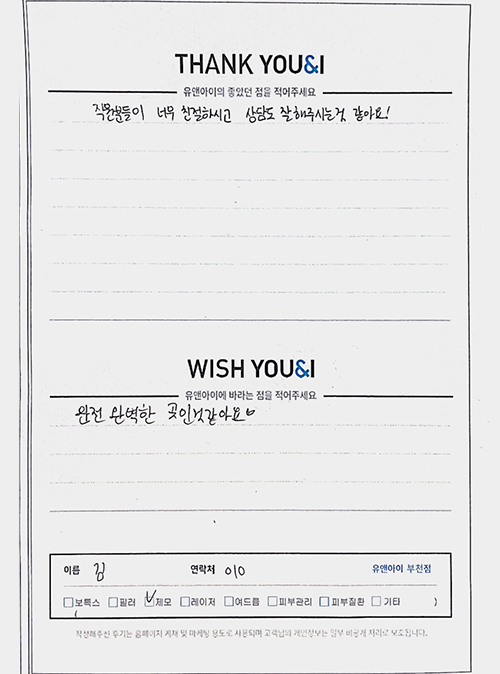 THANK YOU&I
유앤아이의 좋았던 점을 적어주세요
직원분들이 너무 친절하시고 상담도 잘해주시는것 같아요!
WISH YOU&I
유앤아이에 바라는 점을 적어주세요
완전 완벽한 곳인것같아요♡
이름 김 연락처 010 유앤아이 부천점
보톡스 필러 제모 레이저 여드름 피부관리 피부질환 기타 )
작성해주신 후기는 홈페이지 게재 및 마케팅 용도로 사용되며 고객님의 개인정보는 일부 비공개 처리로 보호됩니다.